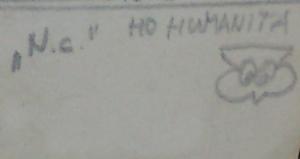 „N.c." HO HUMANITA